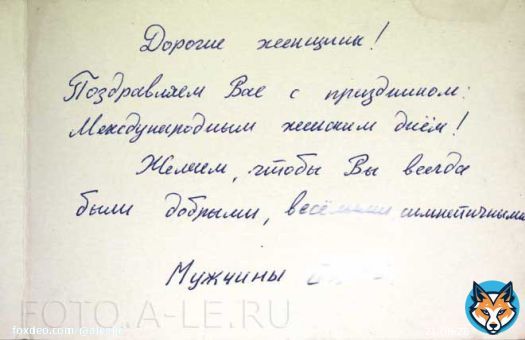 Дорогие женщины!
Поздравляем Вас с праздником:
Международным женским днём!
Желаем, чтобы Вы всегда
были добрыми, весёлыми, симпетичными
Мужчины
FOTO.A-LE.RU